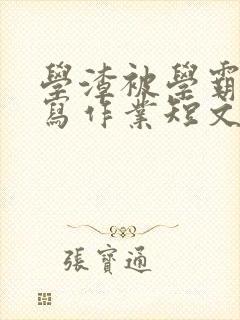 學渣被學霸
寫作業短文
張寶通